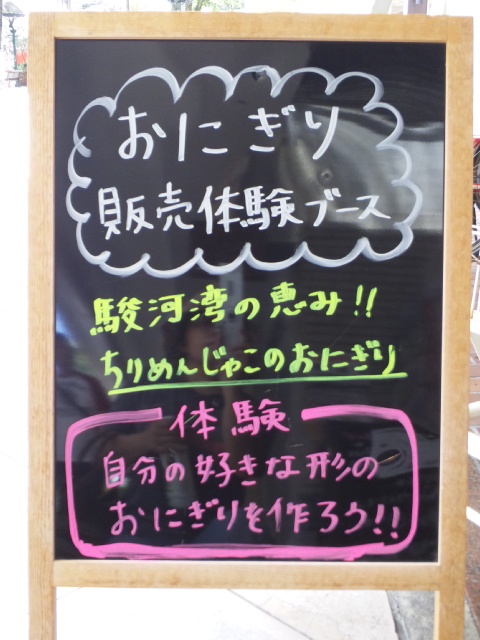 おにぎり
販売体験ブース
駿河湾の恵み!!
ちりめんじゃこのおにぎり
体験
自分の好きな形の
おにぎりを作ろう!!